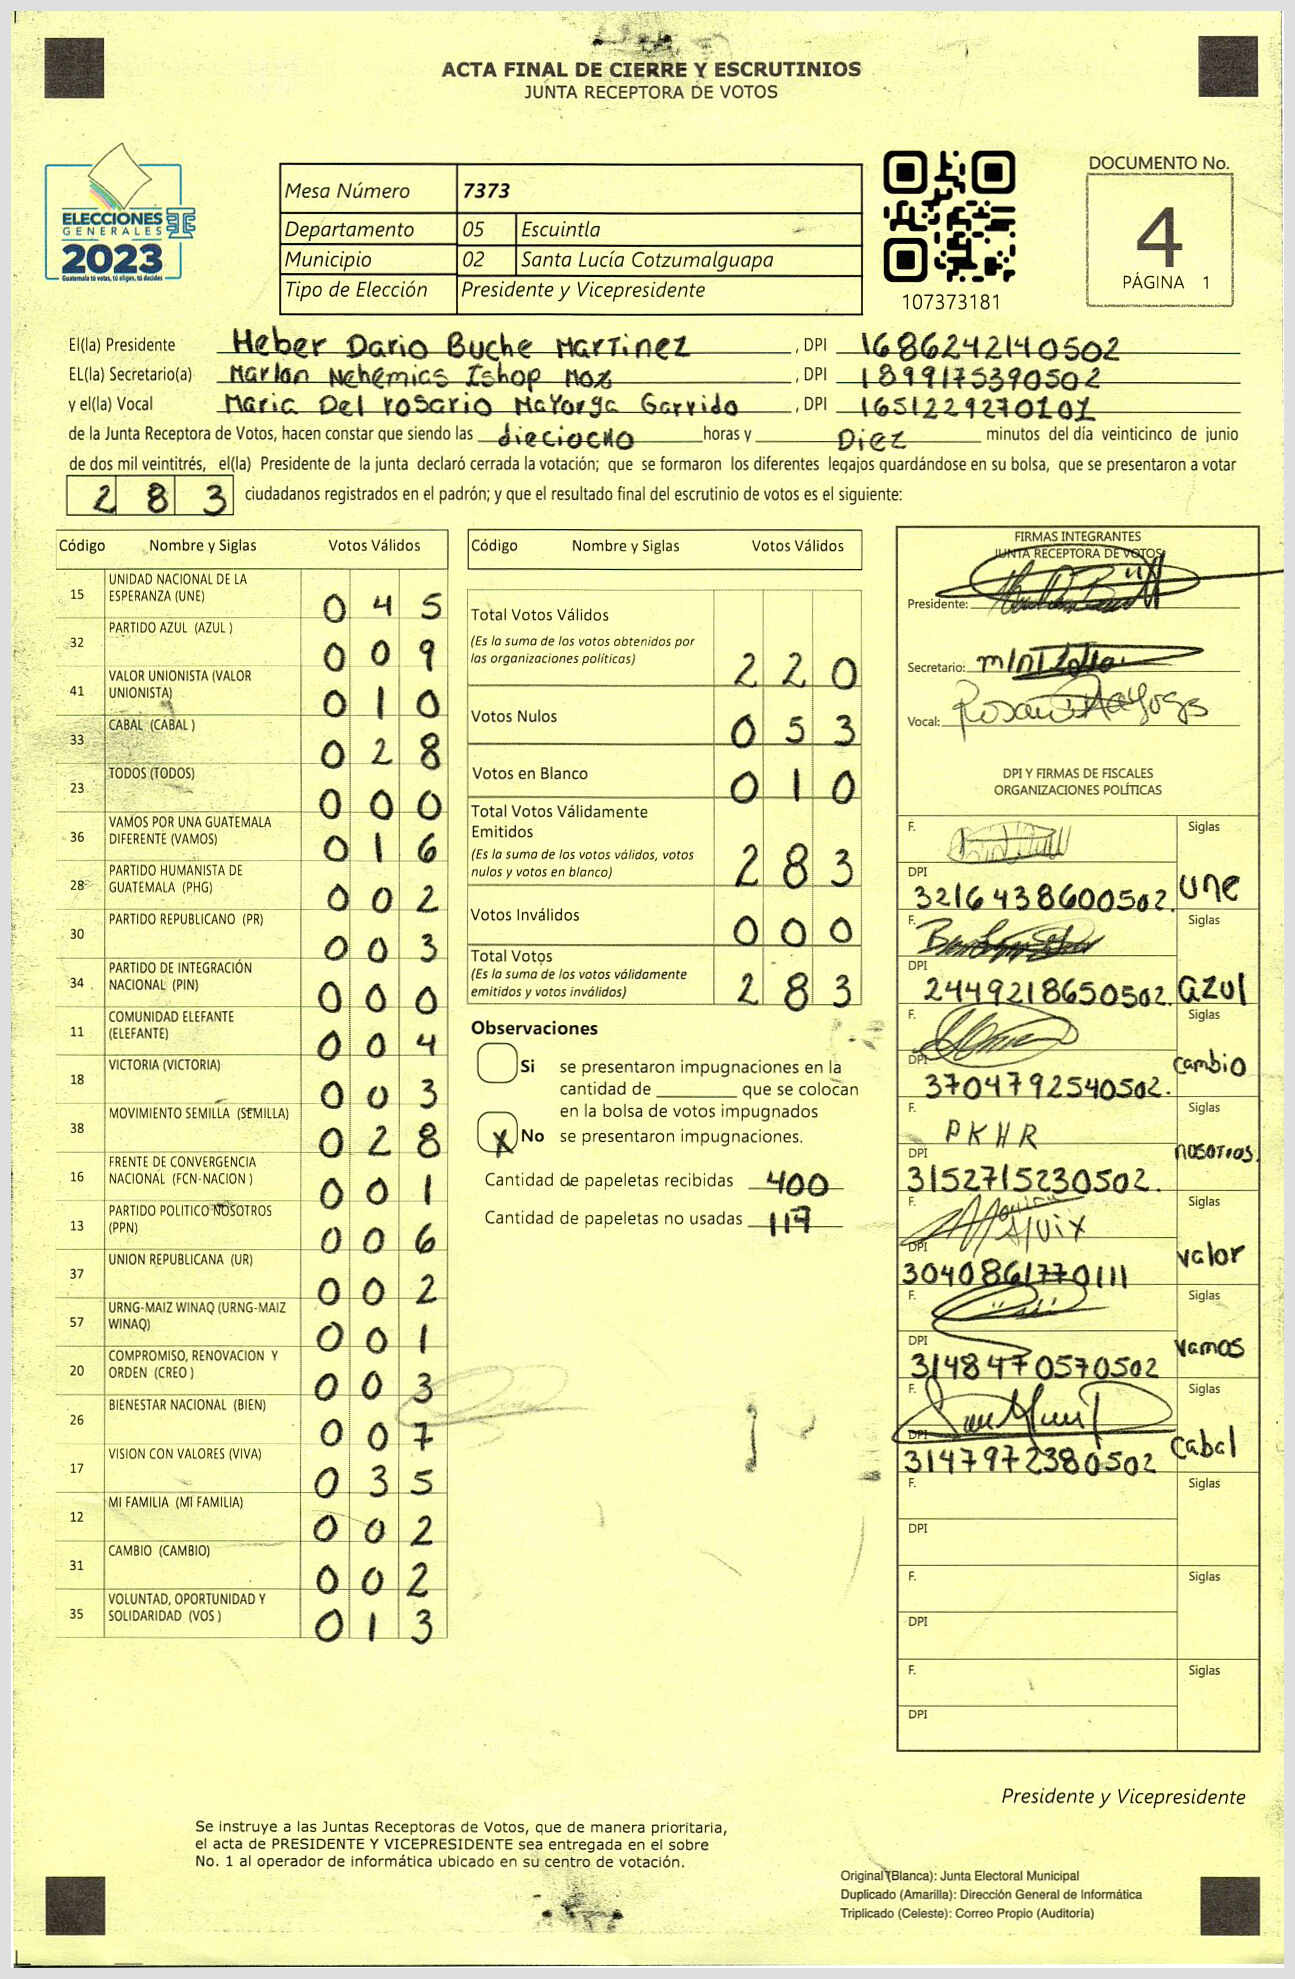 ACTA FINAL DE CIERRE Y ESCRUTINIOS
JUNTA RECEPTORA DE VOTOS
ELECCIONES
GENERALES
2023
Guatemala tú votas, tú eliges, tú decides
Mesa Número 7373
Departamento 05 Escuintla
Municipio 02 Santa Lucía Cotzumalguapa
Tipo de Elección Presidente y Vicepresidente
107373181
DOCUMENTO No.
4
PÁGINA 1
El(la) Presidente Heber Dario Buche Martinez , DPI 1686242140502
EL(la) Secretario(a) Marlon Nehemias Ishop Mox , DPI 1899175390502
y el(la) Vocal Maria Del rosario Mayorga Garrido , DPI 1651229270101
de la Junta Receptora de Votos, hacen constar que siendo las dieciocho horas y Diez minutos del día veinticinco de junio
de dos mil veintitrés, el(la) Presidente de la junta declaró cerrada la votación; que se formaron los diferentes legajos quardándose en su bolsa, que se presentaron a votar
283 ciudadanos registrados en el padrón; y que el resultado final del escrutinio de votos es el siguiente:
Código Nombre y Siglas Votos Válidos
15 UNIDAD NACIONAL DE LA ESPERANZA (UNE) 045
32 PARTIDO AZUL (AZUL ) 009
41 VALOR UNIONISTA (VALOR UNIONISTA) 010
33 CABAL (CABAL ) 028
23 TODOS (TODOS) 000
36 VAMOS POR UNA GUATEMALA DIFERENTE (VAMOS) 016
28 PARTIDO HUMANISTA DE GUATEMALA (PHG) 002
30 PARTIDO REPUBLICANO (PR) 003
34 PARTIDO DE INTEGRACIÓN NACIONAL (PIN) 000
11 COMUNIDAD ELEFANTE (ELEFANTE) 004
18 VICTORIA (VICTORIA) 003
38 MOVIMIENTO SEMILLA (SEMILLA) 028
16 FRENTE DE CONVERGENCIA NACIONAL (FCN-NACION ) 001
13 PARTIDO POLITICO NOSOTROS (PPN) 006
37 UNION REPUBLICANA (UR) 002
57 URNG-MAIZ WINAQ (URNG-MAIZ WINAQ) 001
20 COMPROMISO, RENOVACION Y ORDEN (CREO ) 003
26 BIENESTAR NACIONAL (BIEN) 007
17 VISION CON VALORES (VIVA) 035
12 MI FAMILIA (MI FAMILIA) 002
31 CAMBIO (CAMBIO) 002
35 VOLUNTAD, OPORTUNIDAD Y SOLIDARIDAD (VOS ) 013
Código Nombre y Siglas Votos Válidos
Total Votos Válidos
(Es la suma de los votos obtenidos por
las organizaciones políticas) 220
Votos Nulos 053
Votos en Blanco 010
Total Votos Válidamente
Emitidos
(Es la suma de los votos válidos, votos
nulos y votos en blanco) 283
Votos Inválidos 000
Total Votos
(Es la suma de los votos válidamente
emitidos y votos inválidos) 283
Observaciones
Si se presentaron impugnaciones en la
cantidad de ________ que se colocan
en la bolsa de votos impugnados
X No se presentaron impugnaciones.
Cantidad de papeletas recibidas 400
Cantidad de papeletas no usadas 117
FIRMAS INTEGRANTES
JUNTA RECEPTORA DE VOTOS
Presidente:
Secretario:
Vocal:
DPI Y FIRMAS DE FISCALES
ORGANIZACIONES POLÍTICAS
F. Siglas
DPI
3216438600502. une
F. Siglas
DPI
2449218650502. azul
F. Siglas
DPI
3704792540502. cambio
F. PKHR Siglas
DPI
3152715230502. nosotros.
F. Siglas
DPI
3040861770111 valor
F. Siglas
DPI
3148470570502 vamos
F. Siglas
DPI
3147972380502 cabal
F. Siglas
DPI
F. Siglas
DPI
F. Siglas
DPI
Presidente y Vicepresidente
Se instruye a las Juntas Receptoras de Votos, que de manera prioritaria,
el acta de PRESIDENTE Y VICEPRESIDENTE sea entregada en el sobre
No. 1 al operador de informática ubicado en su centro de votación.
Original (Blanca): Junta Electoral Municipal
Duplicado (Amarilla): Dirección General de Informática
Triplicado (Celeste): Correo Propio (Auditoria)